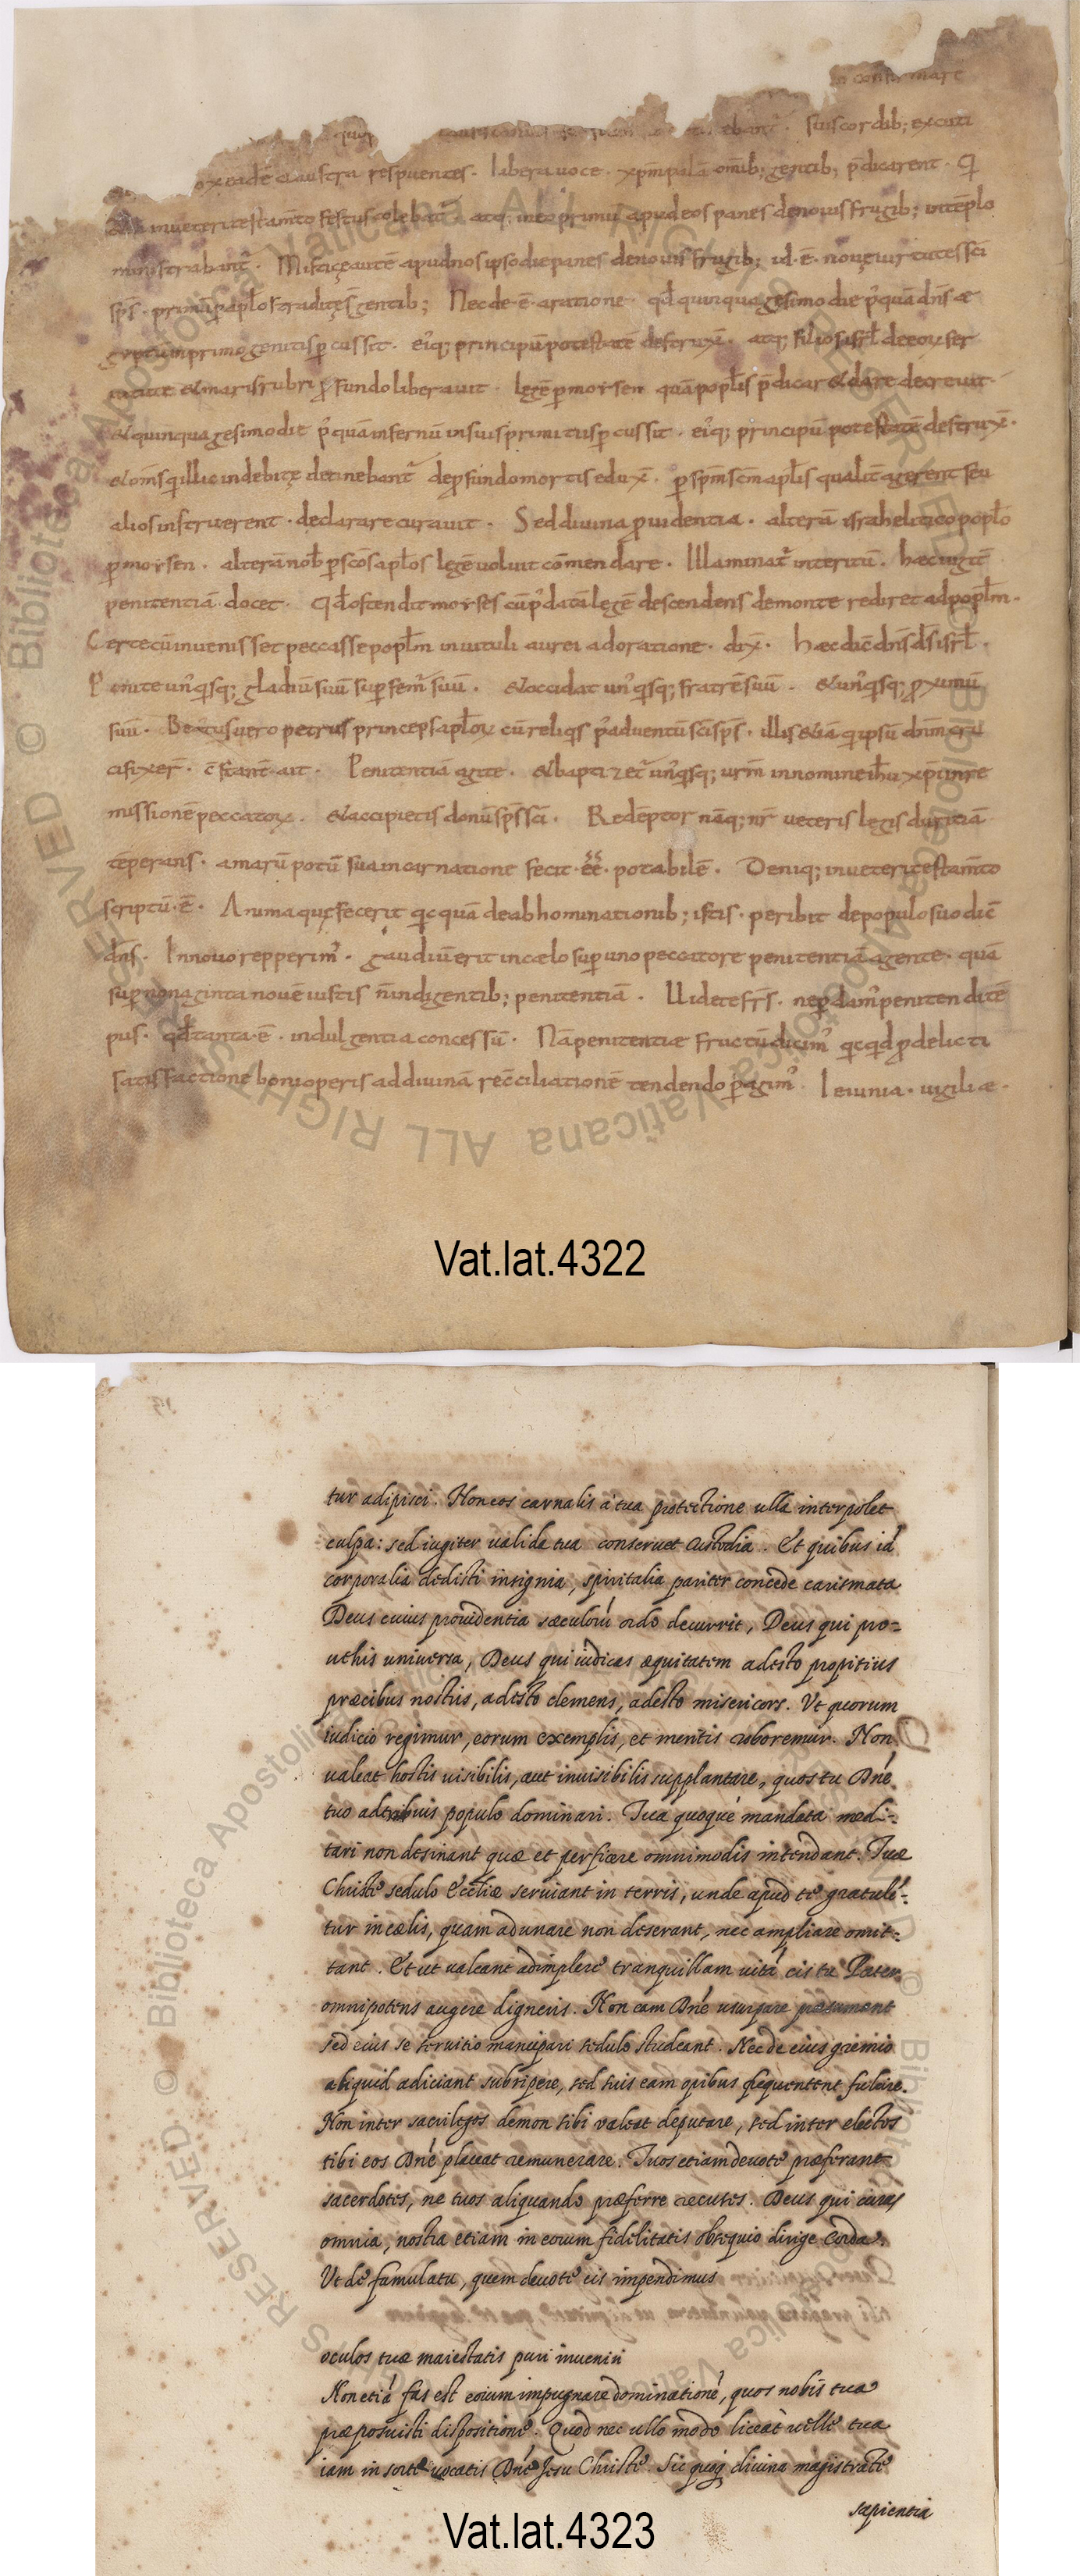 in confirmare
quip ebant᷑ · suis cordib; excuti
respuentes · libera uoce · xp̄m palā omīb; gentib; p̄dicarent · Q
inueteri testam̄to festus colebat᷑ · atq; in ea primū apud eos panes de nouis frugib; in tēplo
ministrabant᷑ · Misticę autē apud nos ipso die panes de nouis frugib; id · ē · nouę uirtutes sc̄i
sp̄s · primū p̄ apl̄os traditę s̄ gentib; Nec de · ē · a ratione · qđ quinquagesimo die p᷒quā dn̄s æ
gyptum primogenitis p̄cussit · eiq; principū potestatē destrux̄ · atq; filios isrl̄ de eoꝝ ser
uitute & maris rubri ꝓfundo liberauit · legē p̄ moisen quā popl̄is p̄dicar& dare decreuit ·
& quinquagesimo die p᷒quā infernū in suis primitiis p̄cussit · eiq; principū potestatē destrux̄ ·
& om̄s q illic indebitę detinebant᷑ de ꝓfundo mortis edux̄ · p̄ sp̄m sc̄m apl̄is qualit̄ agerent seu
alios instruerent · declarare curauit · Sed diuina ꝓuidentia · alterā israhelitico popl̄o
p̄ moisen · alterā nob̄ p̄ sc̄os apl̄os legē uoluit cōmendare · Illa minat᷑ interitū · hæc iugit̄
penitentiā docet · Qđ ostendit moises cū p᷒ datā legē descendens de monte rediret ad popl̄m ·
Certe cū inuenisset peccasse popl̄m in uituli aurei adoratione · dix̄ · hæc dic̄ dn̄s d̄s isrl̄ ·
Ponite un᷒qsq; gladiū suū sup̄ femr̄ suū · & occidat un᷒qsq; fratrē suū · & un᷒qsq; ꝓximū
suū · Beatus uero petrus princeps apl̄oꝝ cū reliqs p᷒ aduentū sc̄i sp̄s · illis etiā q ipsū dn̄m cru
cifixer̄ · c̄stant̄ ait · Penitentiā agite · & baptizet᷑ un᷒qsq; ur̄m in nomine ih̄u xp̄i in re
missionē peccatoꝝ · & accipietis donū sp̄s sc̄i · Redēptor nāq; nr̄ ueteris legis duritiā
tēperans · amarū potū sua incarnatione fecit · ēē · potabilē · Deniq; in ueteri testam̄to
scriptū · ē · Anima quę fecerit qcquā de abhominationib; istis · peribit de populo suo dic̄
dn̄s · In nouo repperim᷒ · gaudiū erit in cælo sup̄ uno peccatore penitentiā agente · quā
sup̄ nonaginta nouē iustis n̄ indigentib; penitentiā · Uidete fr̄s · ne p̄dam᷒ penitendi tē
pus · qđ tanta · ē · indulgentia concessū · Nā penitentiæ fructū dicim᷒ qcqd ꝓ delicti
satisfactione boni operis ad diuinā recc̄iliationē tendendo p̄agim᷒ · Ieiunia · uigiliæ ·
Vat.lat.4322
tur adipisci. Non eos carnalis à tua protectione ulla interpolet
culpa: sed iugiter ualida tua conseruet custodia. Et quibus id
corporalia dedisti insignia, spiritalia pariter concede carismata
Deus cuius prouidentia sæculorū ordo decurrit, Deus qui pro=
uehis uniuersa, Deus qui iudicas æquitatem adesto propitius
præcibus nostris, adesto clemens, adesto misericors. Vt quorum
iudicio regimur, eorum exemplis, et meritis roboremur. Non
ualeat hostis uisibilis, aut inuisibilis supplantare, quos tu Dñe
tuo adtribuis populo dominari. Tua quoque mandata medi=
tari non desinant quæ et perficere omnimodis intendant. Tuæ
Christe sedulo Eccliæ seruiant in terris, unde apud te gratulē=
tur in cælis, quam adunare non deserant, nec ampliare omit=
tant. Et ut ualeant adimplere tranquillam uitā eis tu Pater
omnipotens augere digneris. Non eam Dñe usurpare præsumant
sed eius se seruitio mancipari sedulo studeant. Nec de eius gremio
aliquid adiciant subripere, sed suis eam opibus frequentent fulcire.
Non inter sacrilegos demon sibi valeat deputare, sed inter electos
tibi eos Dñe placeat remunerare. Tuos etiam deuote præferant
sacerdotes, ne tuos aliquando præferre recuses. Deus qui curas
omnia, nostra etiam in eorum fidelitatis obsequio dirige corda.
Vt de famulatu, quem deuote eis impendimus
oculos tuæ maiestatis puri inueniri
Non etiā fas est eorum impugnare dominationē, quos nobis tua
præposuisti dispositione. Quod nec ullo modo liceat uelle tua
iam in sorte uocatis Dñe Jesu Christe. Sic quoq; diuina magistrate
sapientia
Vat.lat.4323